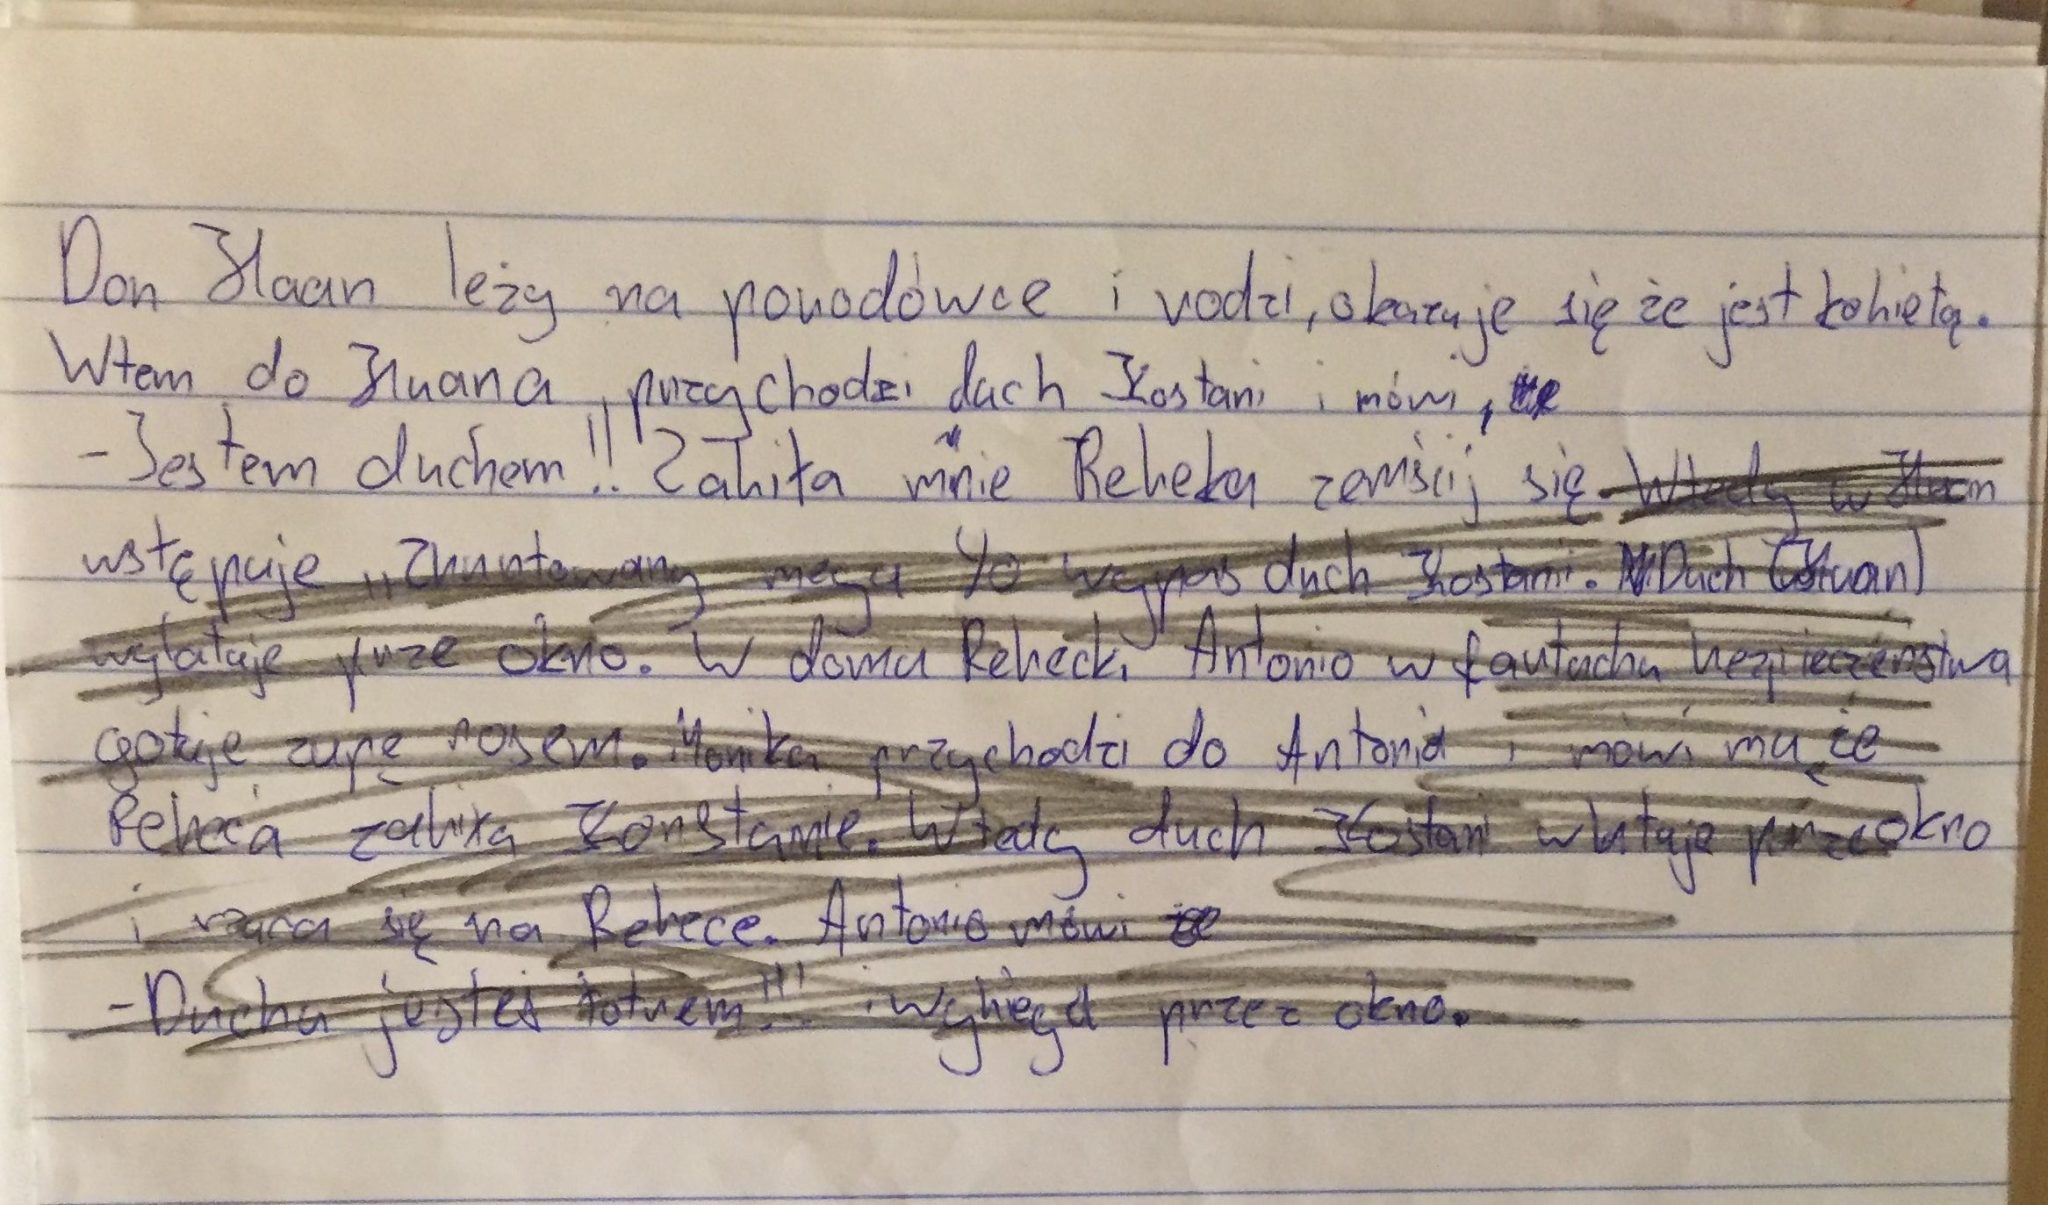 Don Huan leży na porodówce i rodzi, okazuje się że jest kobietą.
Wtem do Huana przychodzi duch Kostani i mówi,
- Jestem duchem!! Zabiła mnie Rebeka zemścij się. Wtedy w Huan
wstępuje „Zbuntowany mega Yo wypas duch Kostani. Duch (Huan)
wylatuje prze okno. W domu Rebecki Antonio w fartuchu bezpieczeństwa
gotuje zupę rosem. Monika przychodzi do Antonia i mówi mu, że
Rebeca zabiła Konstanie. Wtedy duch Kostani wlatuje przez okno
i rzuca się na Rebece. Antonio mówi że
- Duchu jesteś łotrem!!! i wybiegł przez okno.